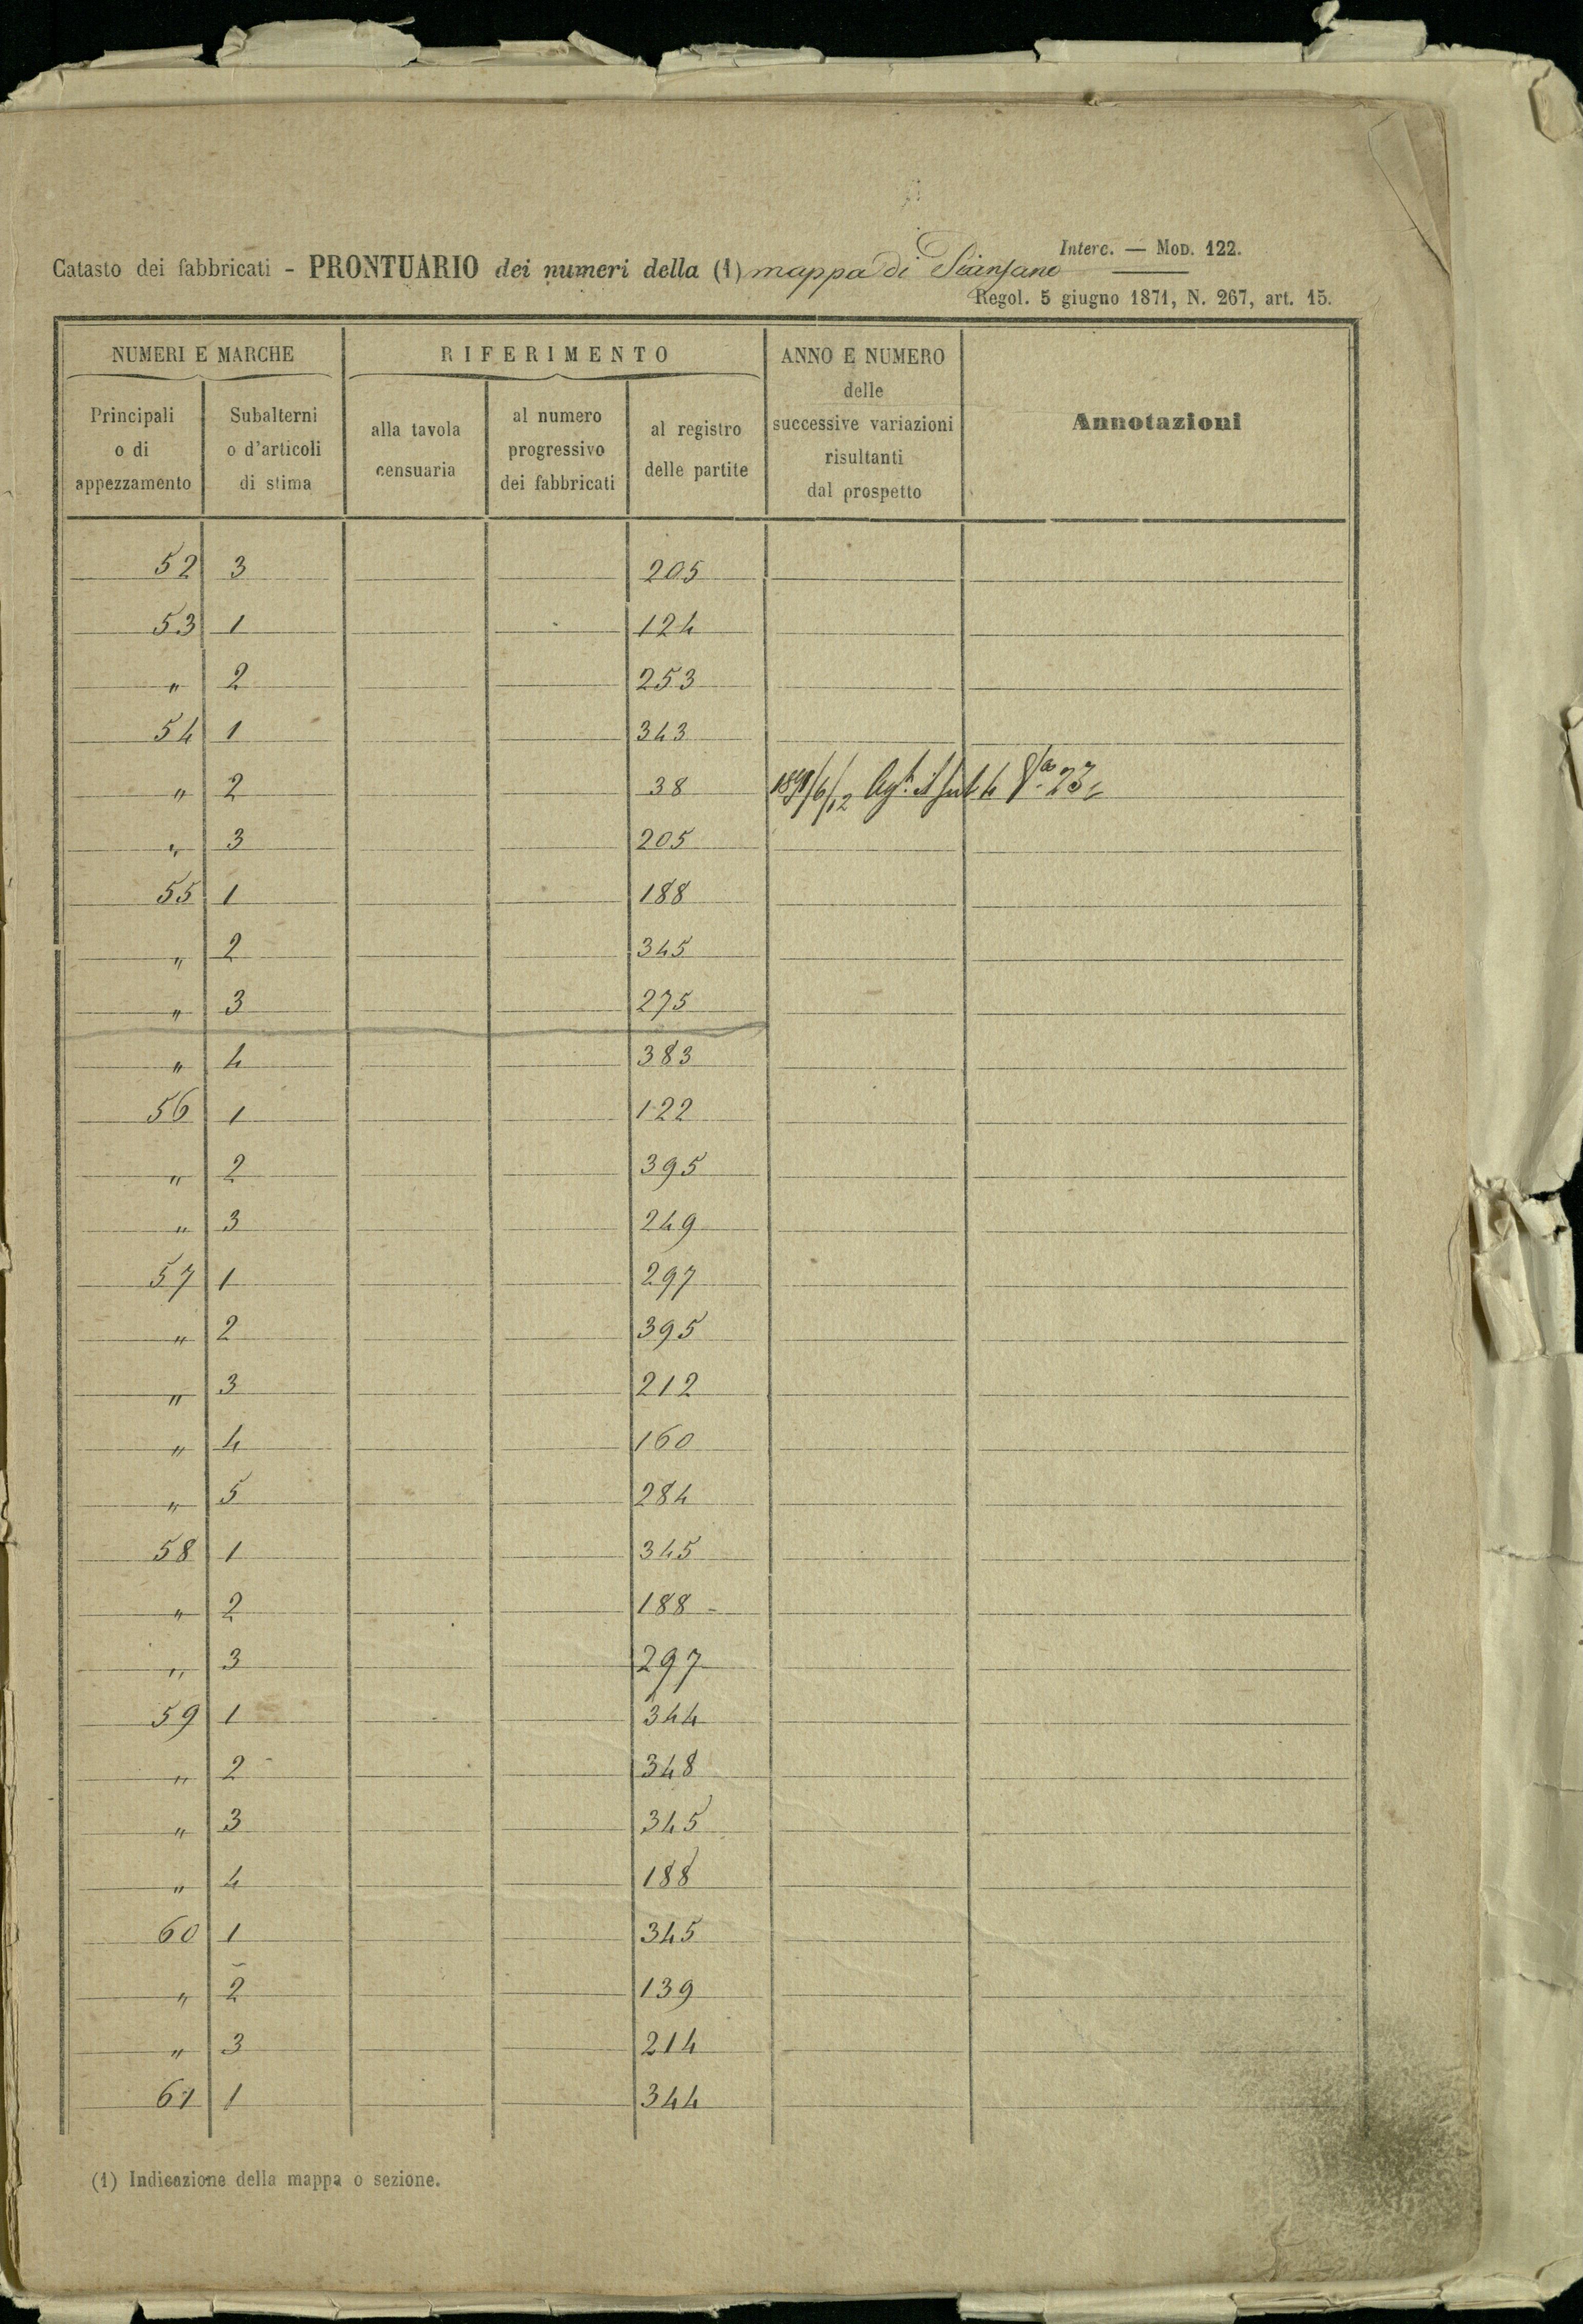 Interc. — MOD. 122.
Catasto dei fabbricati - PRONTUARIO dei numeri della (1) mappa di Scansano
Regol. 5 giugno 1871, N. 267, art. 15.
NUMERI E MARCHE RIFERIMENTO ANNO E NUMERO delle successive variazioni risultanti dal prospetto Annotazioni
Principali o di appezzamento Subalterni o d'articoli di stima alla tavola censuaria al numero progressivo dei fabbricati al registro delle partite
52 3 205
53 1 124
" 2 253
54 1 343
" 2 38 23
" 3 205
55 1 188
" 2 345
" 3 275
" 4 383
56 1 122
" 2 395
" 3 249
57 1 297
" 2 395
" 3 212
" 4 160
" 5 284
58 1 345
" 2 188 -
" 3 297
59 1 344
" 2 348
" 3 345
" 4 188
60 1 345
" 2 139
" 3 214
61 1 344
(1) Indicazione della mappa o sezione.